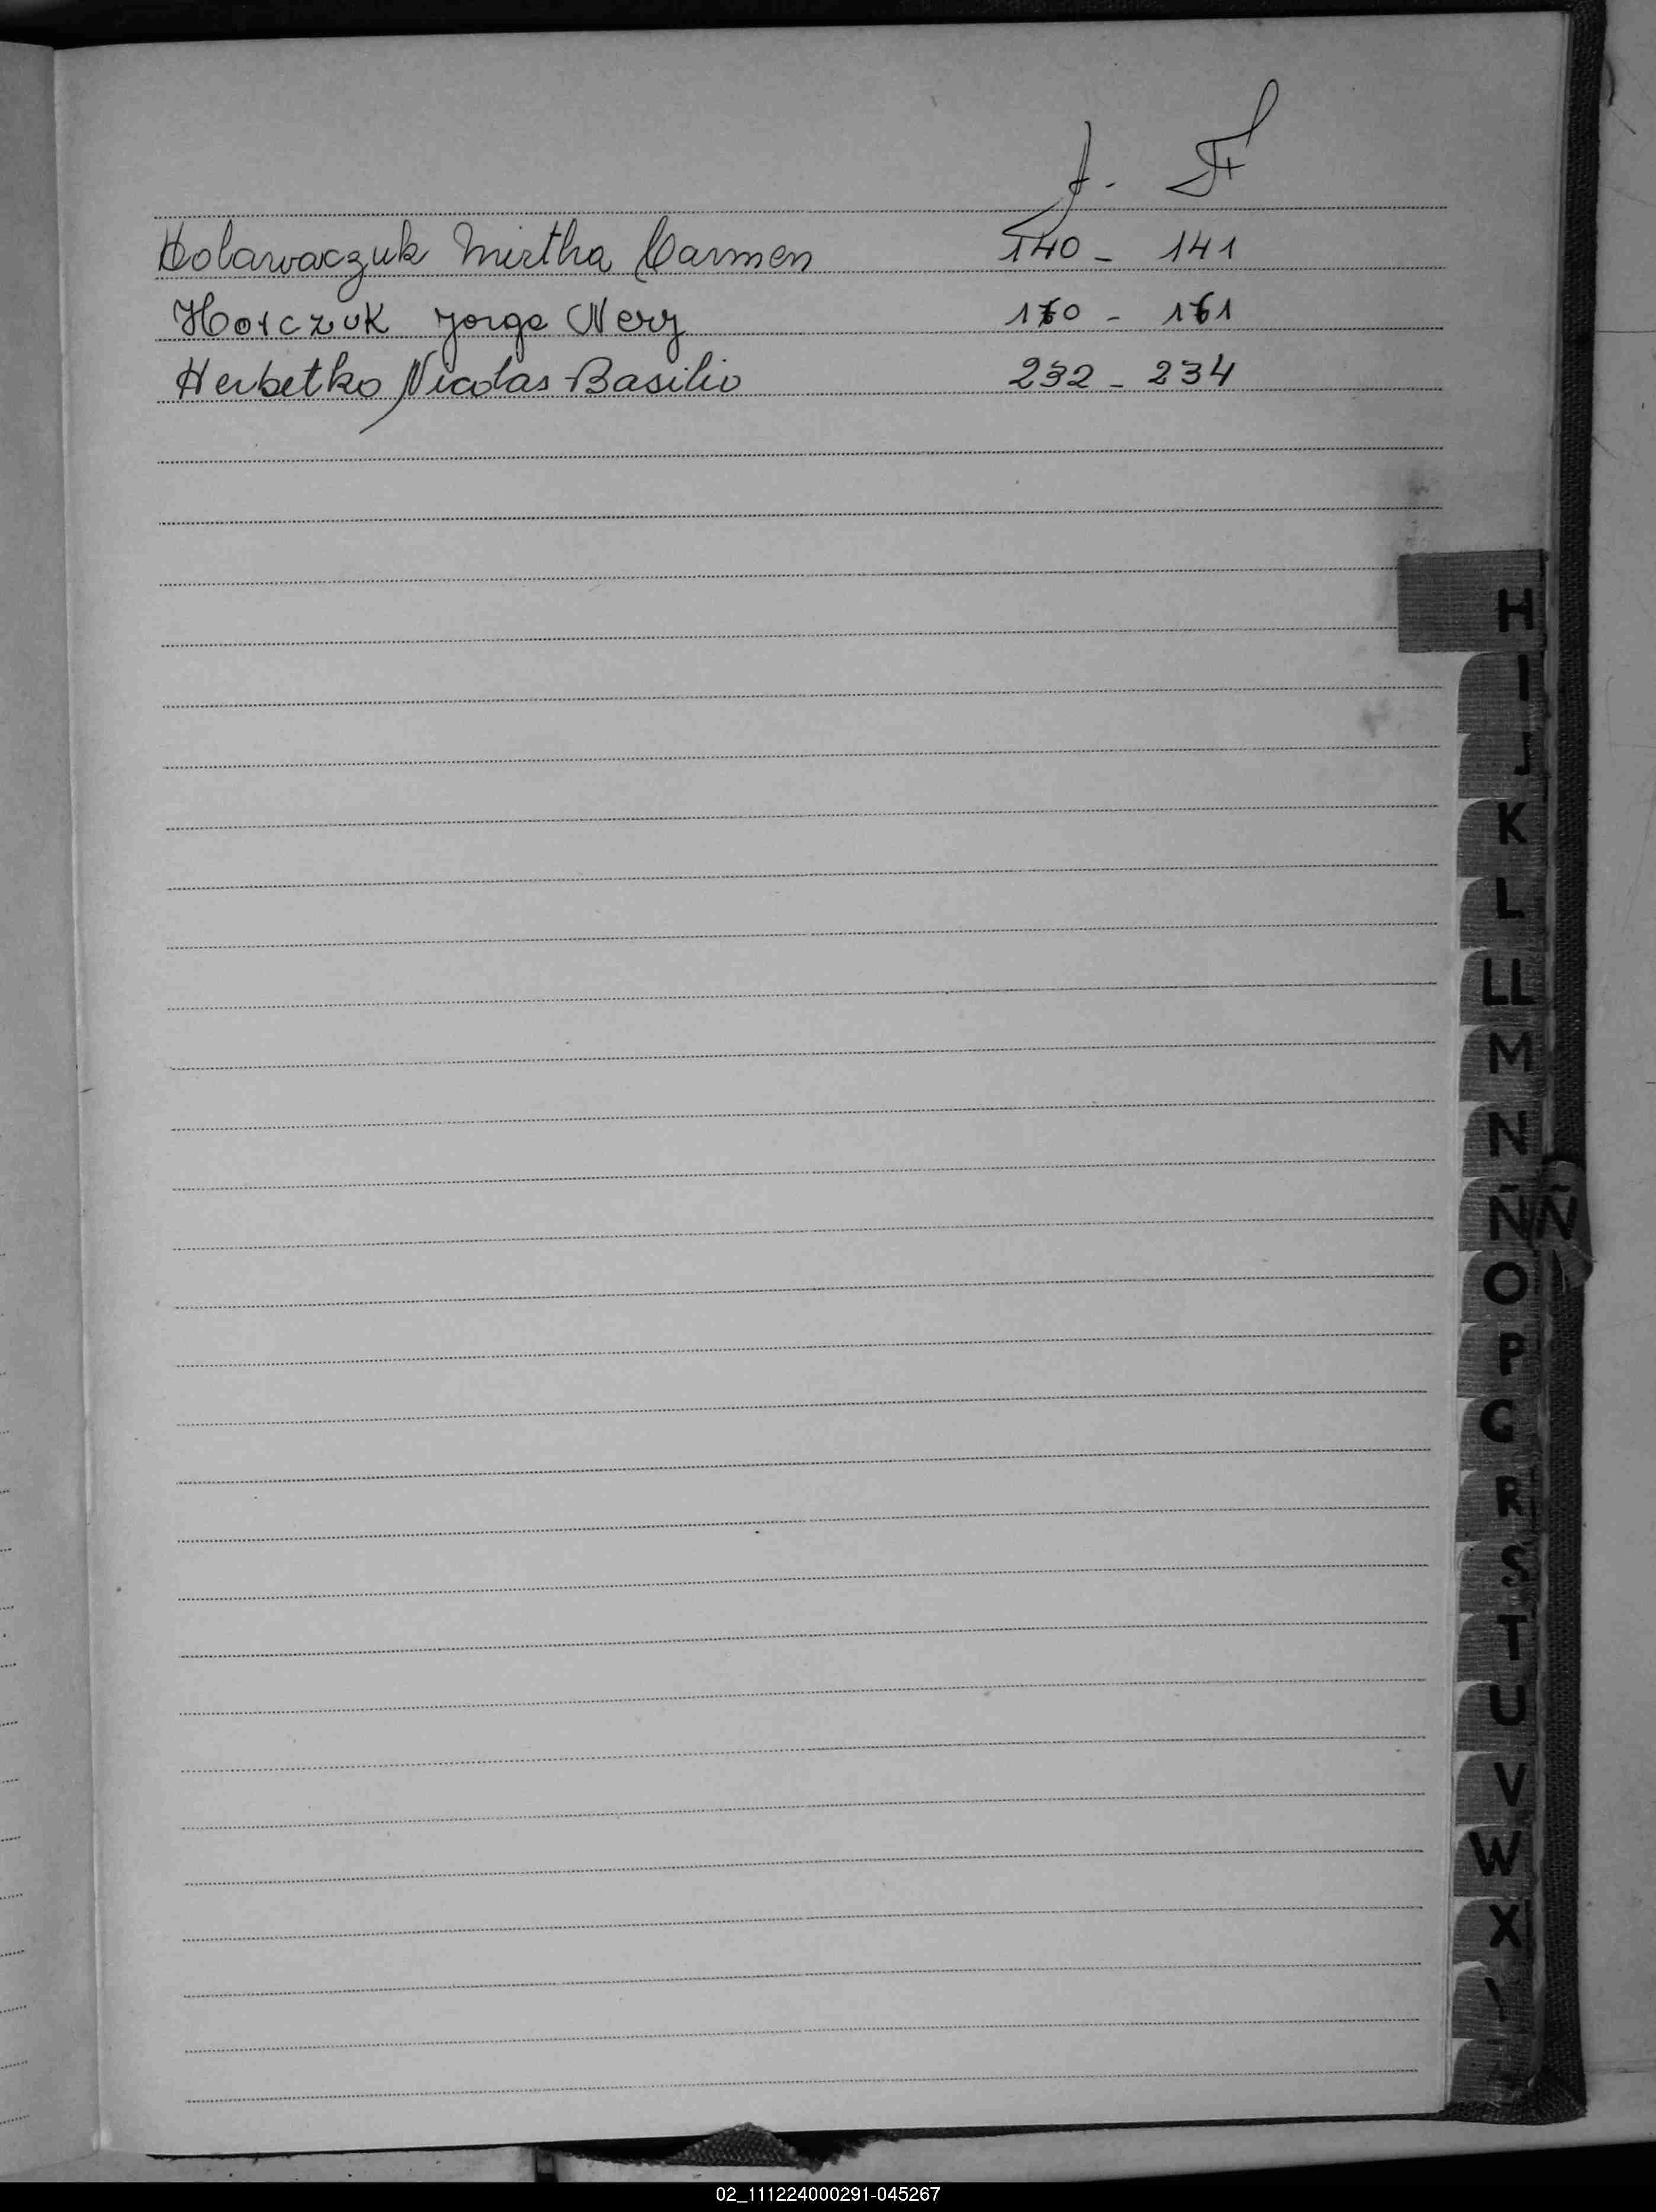 f. F
Holawaczuk Mirtha Carmen 140 - 141
Horczuk Jorge Nery 160 - 161
Herbetko Nicolas Basilio 232 - 234
H
I
J
K
L
LL
M
N
Ñ Ñ
O
P
R
S
T
U
V
W
X
02_111224000291-045267